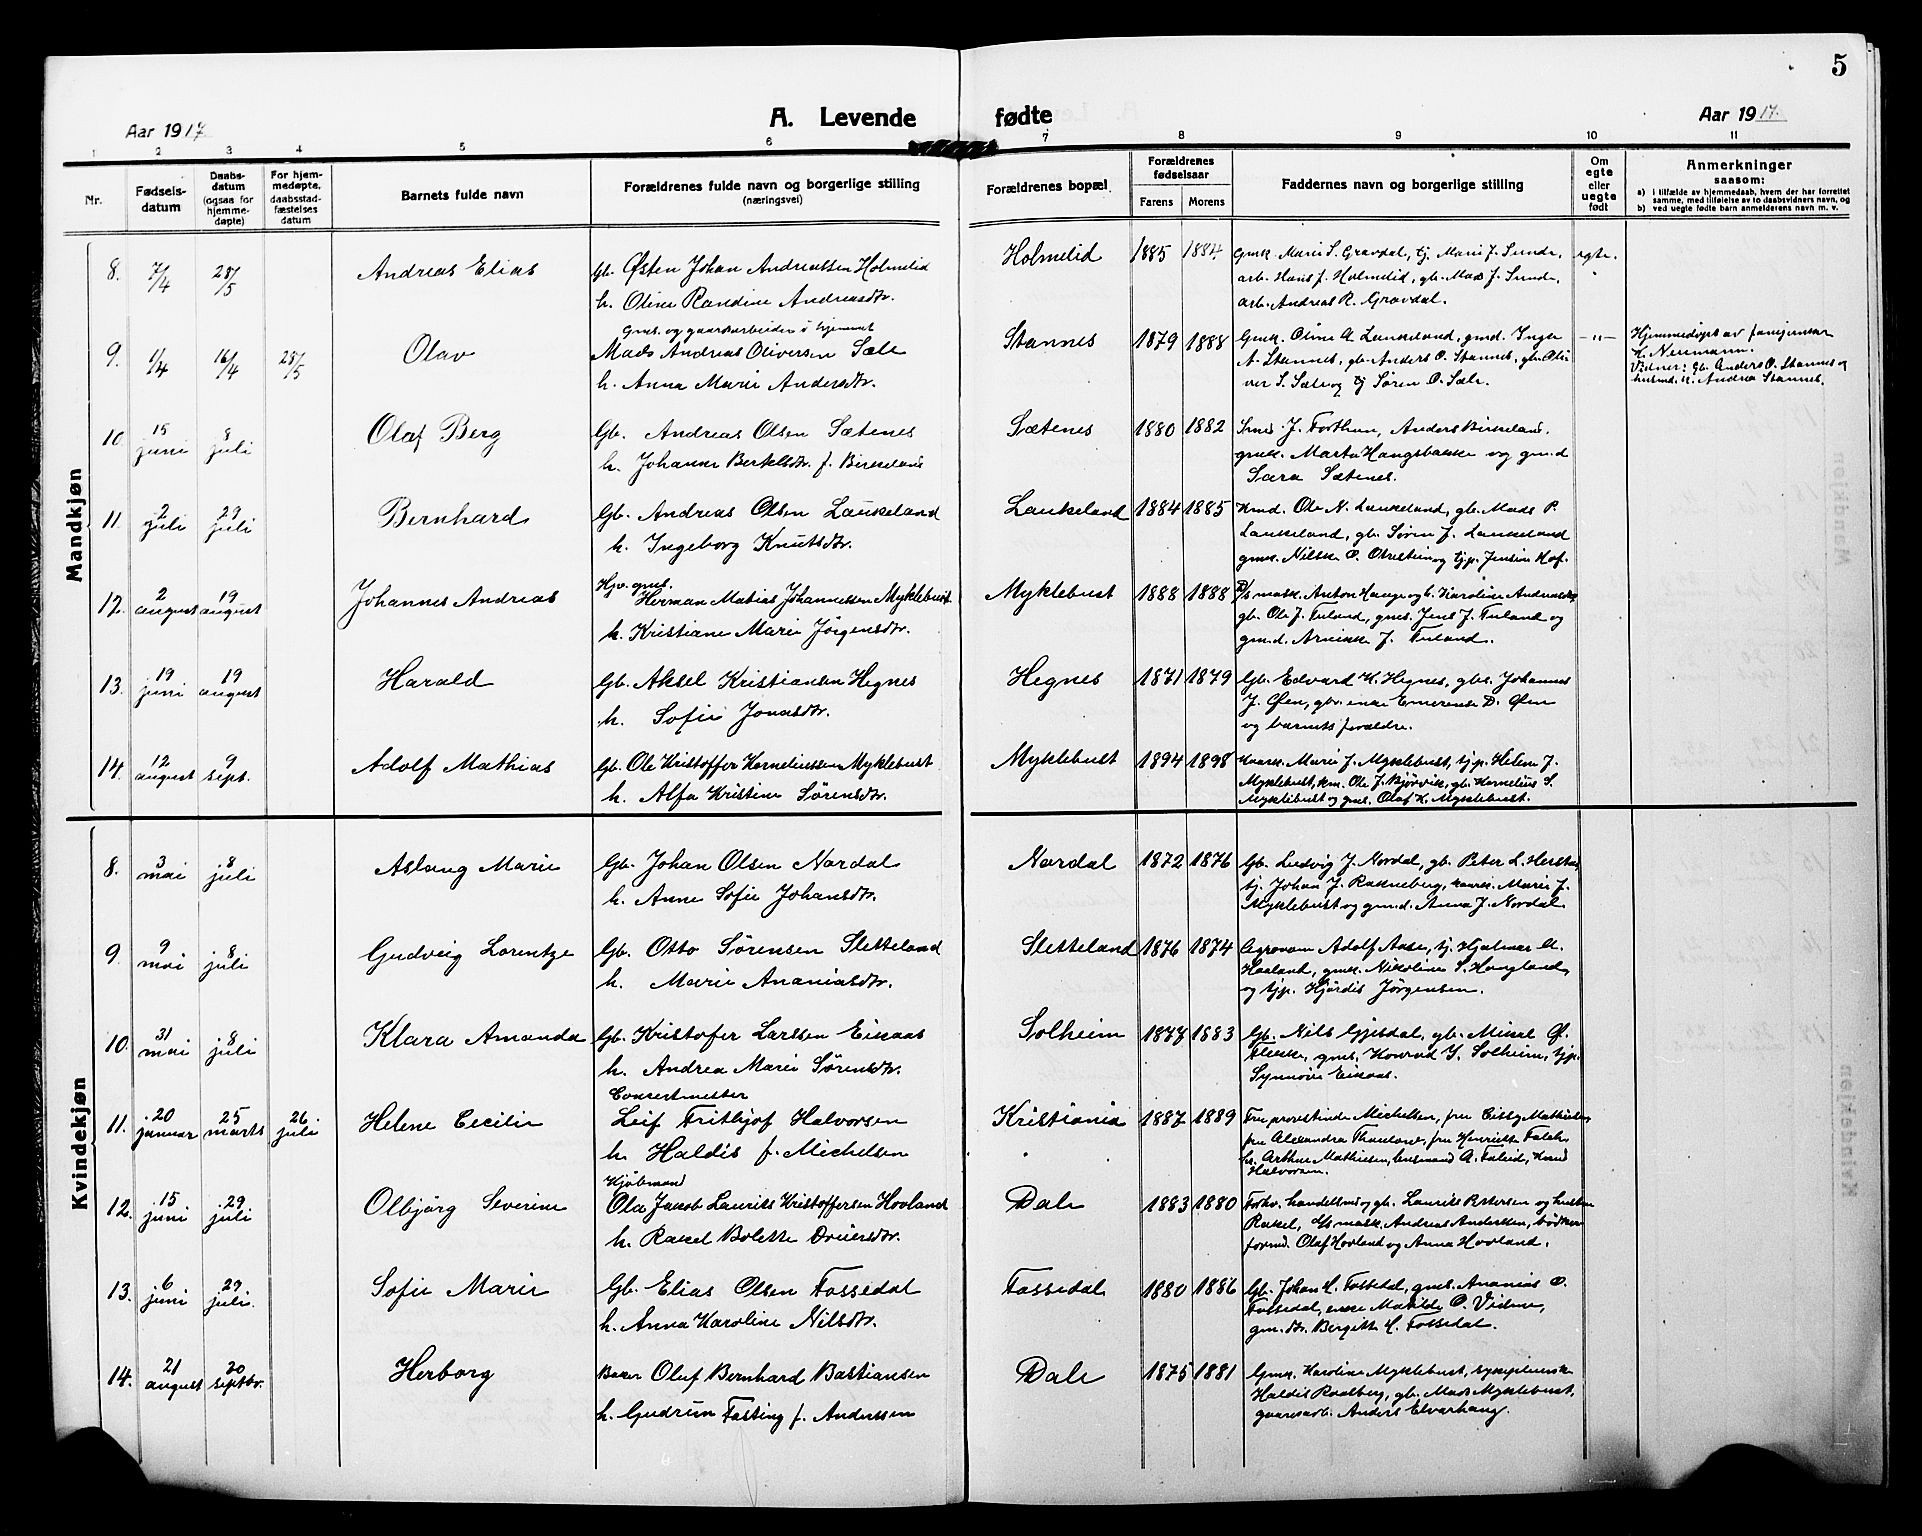 5
Aar 1917
A. Levende fødte
Aar 1917.
1 2 3 4 5 6 7 8 9 10 11
Nr.
Fødselsdatum
Daabsdatum (ogsaa for hjemmedøpte)
For hjemmedøpte, daabsstadfæstelses datum
Barnets fulde navn
Forældrenes fulde navn og borgerlige stilling (næringsvei)
Forældrenes bopæl
Forældrenes fødselsaar
Farens Morens
Faddernes navn og borgerlige stilling
Om egte eller uegte født
Anmerkninger
saasom:
a) i tilfælde av hjemmedaab, hvem der har forrettet samme, med tilføielse av to daabsvidners navn, og
b) ved uegte fødte barn anmelderens navn m. v.
Mandkjøn
8. 7/4 28/5 Andreas Elias Gb. Østen Johan Andreassen Holmelid Holmelid 1885 1884 Gmk. Marie S. Gravdal, tj. Marie J. Sunde, egte.
h. Oline Randine Andreasdtr. arb. Hans J. Holmelid, gb. Mads J. Sunde,
arb. Andreas R. Gravdal.
Gms. og gaardsarbeider i hjemmet
9. 1/4 16/4 28/5 Olav Mads Andreas Oliversen Sæle Stannes 1879 1888 Gmk. Oline A. Laukeland, gmd. Inger -"- Hjemmedøpt av
h. Anna Marie Andersdtr. A. Stannes, gb. Anders O. Stannes, gb. Oliver S. Sæle og tj. Søren O. Sæle. K. Neumann.
Vidner: Gb. Anders O. Stannes og
Andrea Stannes.
10. 15 juni 8 juli Olaf Berg Gb. Andreas Olsen Sætenes Sætenes 1880 1882 Smed J. Forthun, Anders Birkeland,
h. Johanne Bertelsdtr. f. Birkeland gmk. Marta Haugsbakke og gm.d
Sara Sætenes.
11. 2 juli 29 juli Bernhard Gb. Andreas Olsen Laukeland Laukeland 1884 1885 Kmd. Ole N. Laukeland, gb. Mads P.
h. Ingeborg Knutsdtr. Laukeland, gb. Søren J. Laukeland
gmk. Nilske O. og tjp. Jensine Hof.
Hjv. gms.
12. 2 august 19 august Johannes Andreas Herman Matias Johannessen Myklebust Myklebust 1888 1888 D/s mask. Anton Hauge og h. Karoline Andreasdtr,
h. Kristiane Marie Jörgensdtr. gb. Ole J. Tuland, gms. Jens J. Tuland og
gm.d. J. Tuland.
13. 19 juni 19 august Harald Gb. Aksel Kristiansen Hegnes Hegnes 1871 1879 Gb. Edvard K. Hegnes, gbs. Johannes
h. Sofie Jonasdtr. J. Øen, gbr. enke Emerense D. Øen
og barnets forældre.
14. 12 august 9 sept. Adolf Mathias Gb. Ole Kristoffer Korneliussen Myklebust Myklebust 1894 1898 Marie J. Myklebust, tjp. Helene J.
h. Alfa Kristine Sörensdtr. Myklebust, km. Ole J. Bjørvik, gb. Kornelius S.
Myklebust og gms. Olaf K. Myklebust.
Kvindekjøn
8. 3 mai 8 juli Aslaug Marie Gb. Johan Olsen Nordal Nordal 1872 1876 Gb. Ludvig J. Nordal, gb. Peter L. Herstad,
h. Anne Sofie Johansdtr. tj. Johan J. Rakneberg, Marie J.
Myklebust og gm.d. Anna J. Nordal.
9. 9 mai 8 juli Gudveig Lorentze Gb. Otto Sörensen Sletteland Sletteland 1876 1874 Agronom Adolf Aase, tj. Hjalmar A.
h. Marie Ananiasdtr. Haaland, gmk. Nikoline S. Haugland,
og tjp. Hjördis Jörgensen.
10. 31 mai 8 juli Klara Amanda Gb. Kristofer Larssen Eikaas Solheim 1877 1883 Gb. Nils Gjesdal, gb. Mikal Ø.
h. Andrea Marie Sörensdtr. Flekke, gms. Konrad Y. Solheim, tjp.
Synnøve Eikaas.
Concertmester
11. 20 januar 25 marts 26 juli Helene Cecilie Leif Frithjof Halvorsen Kristiania 1887 1889 Fru provstinde Michelsen, fru Cissy Mathiesen,
h. Haldis f. Michelsen fru Alexandra Thaulow, fru Henriette
hr. Arthur Mathiesen, lensmand A. Taleid, Knud
Halvorsen.
Kjøbmand
12. 15 juni 29 juli Olbjørg Severine Ola Jacob Laurits Kristoffersen Hovland Dale 1883 1880 Forhv. handelsmd og gb. Laurits Petersen og hustru
h. Rakel Bolette Driersdtr. Rakel, D/s mask. Andreas Anderssen, bödker
formd. Olaf Hovland og Anna Hovland.
13. 6 juni 29 juli. Sofie Marie Gb. Elias Olsen Fossedal Fossedal 1880 1886 Gb. Johan H. Fossedal, gms. Ananias O.
h. Anna Karoline Nilsdtr. Fossedal, enke Matilde O. Vidme,
gm. dtr. Bergitte H. Fossedal.
14. 21 august 30 septbr. Herborg Baker Oluf Bernhard Bastiansen Dale 1875 1881 Gmk. Karoline Myklebust, sykepleierske
h. Gudrun Fasting f. Anderssen Haldis Raalberg, gb. Mads Myklebust,
gaardsarb. Anders Elvarhaug.